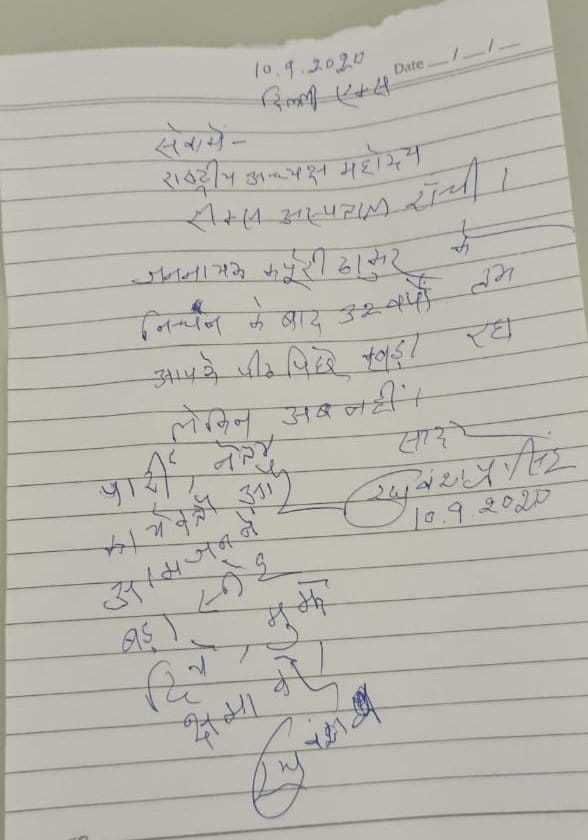 Date __/__/__
10.9.2020
दिल्ली एम्स
सेवामें-
राष्ट्रीय अध्यक्ष महोदय
रीम्स अस्पताल राँची।
जननायक कर्पूरी ठाकुर के
निधन के बाद 32 वर्षों तक
आपके पीछे पीछे खड़ा रहा
लेकिन अब नहीं।
पार्टी, नेता, सादर
कार्यकर्ता और रघुवंश प्रसाद सिंह
आमजन ने 10.9.2020
बड़ा स्नेह
दिया, मुझे
क्षमा करें।
रघुवंश